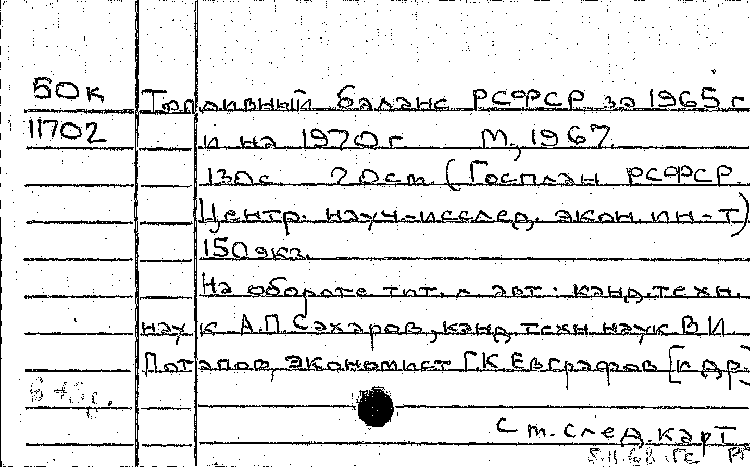 50к Топливный баланс РСФСР за 1965 г
11702 и на 1970 г М., 1967.
130 с. 20 см. (Госплан РСФСР.
Центр. науч-исслед. экон. ин-т)
150 экз.
На обороте тит. л. авт.: канд. техн.
наук А.П. Сахаров, канд. техн. наук В И
Потапов, экономист Г.К. Евграфов [и др.]
См. след. карт